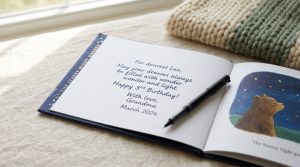 For dearest Leo,
May your dreams always
be filled with wonder
wonder and light.
Happy 3rd Birthday!
With love,
Grandma
March 2024
"The Starry Night